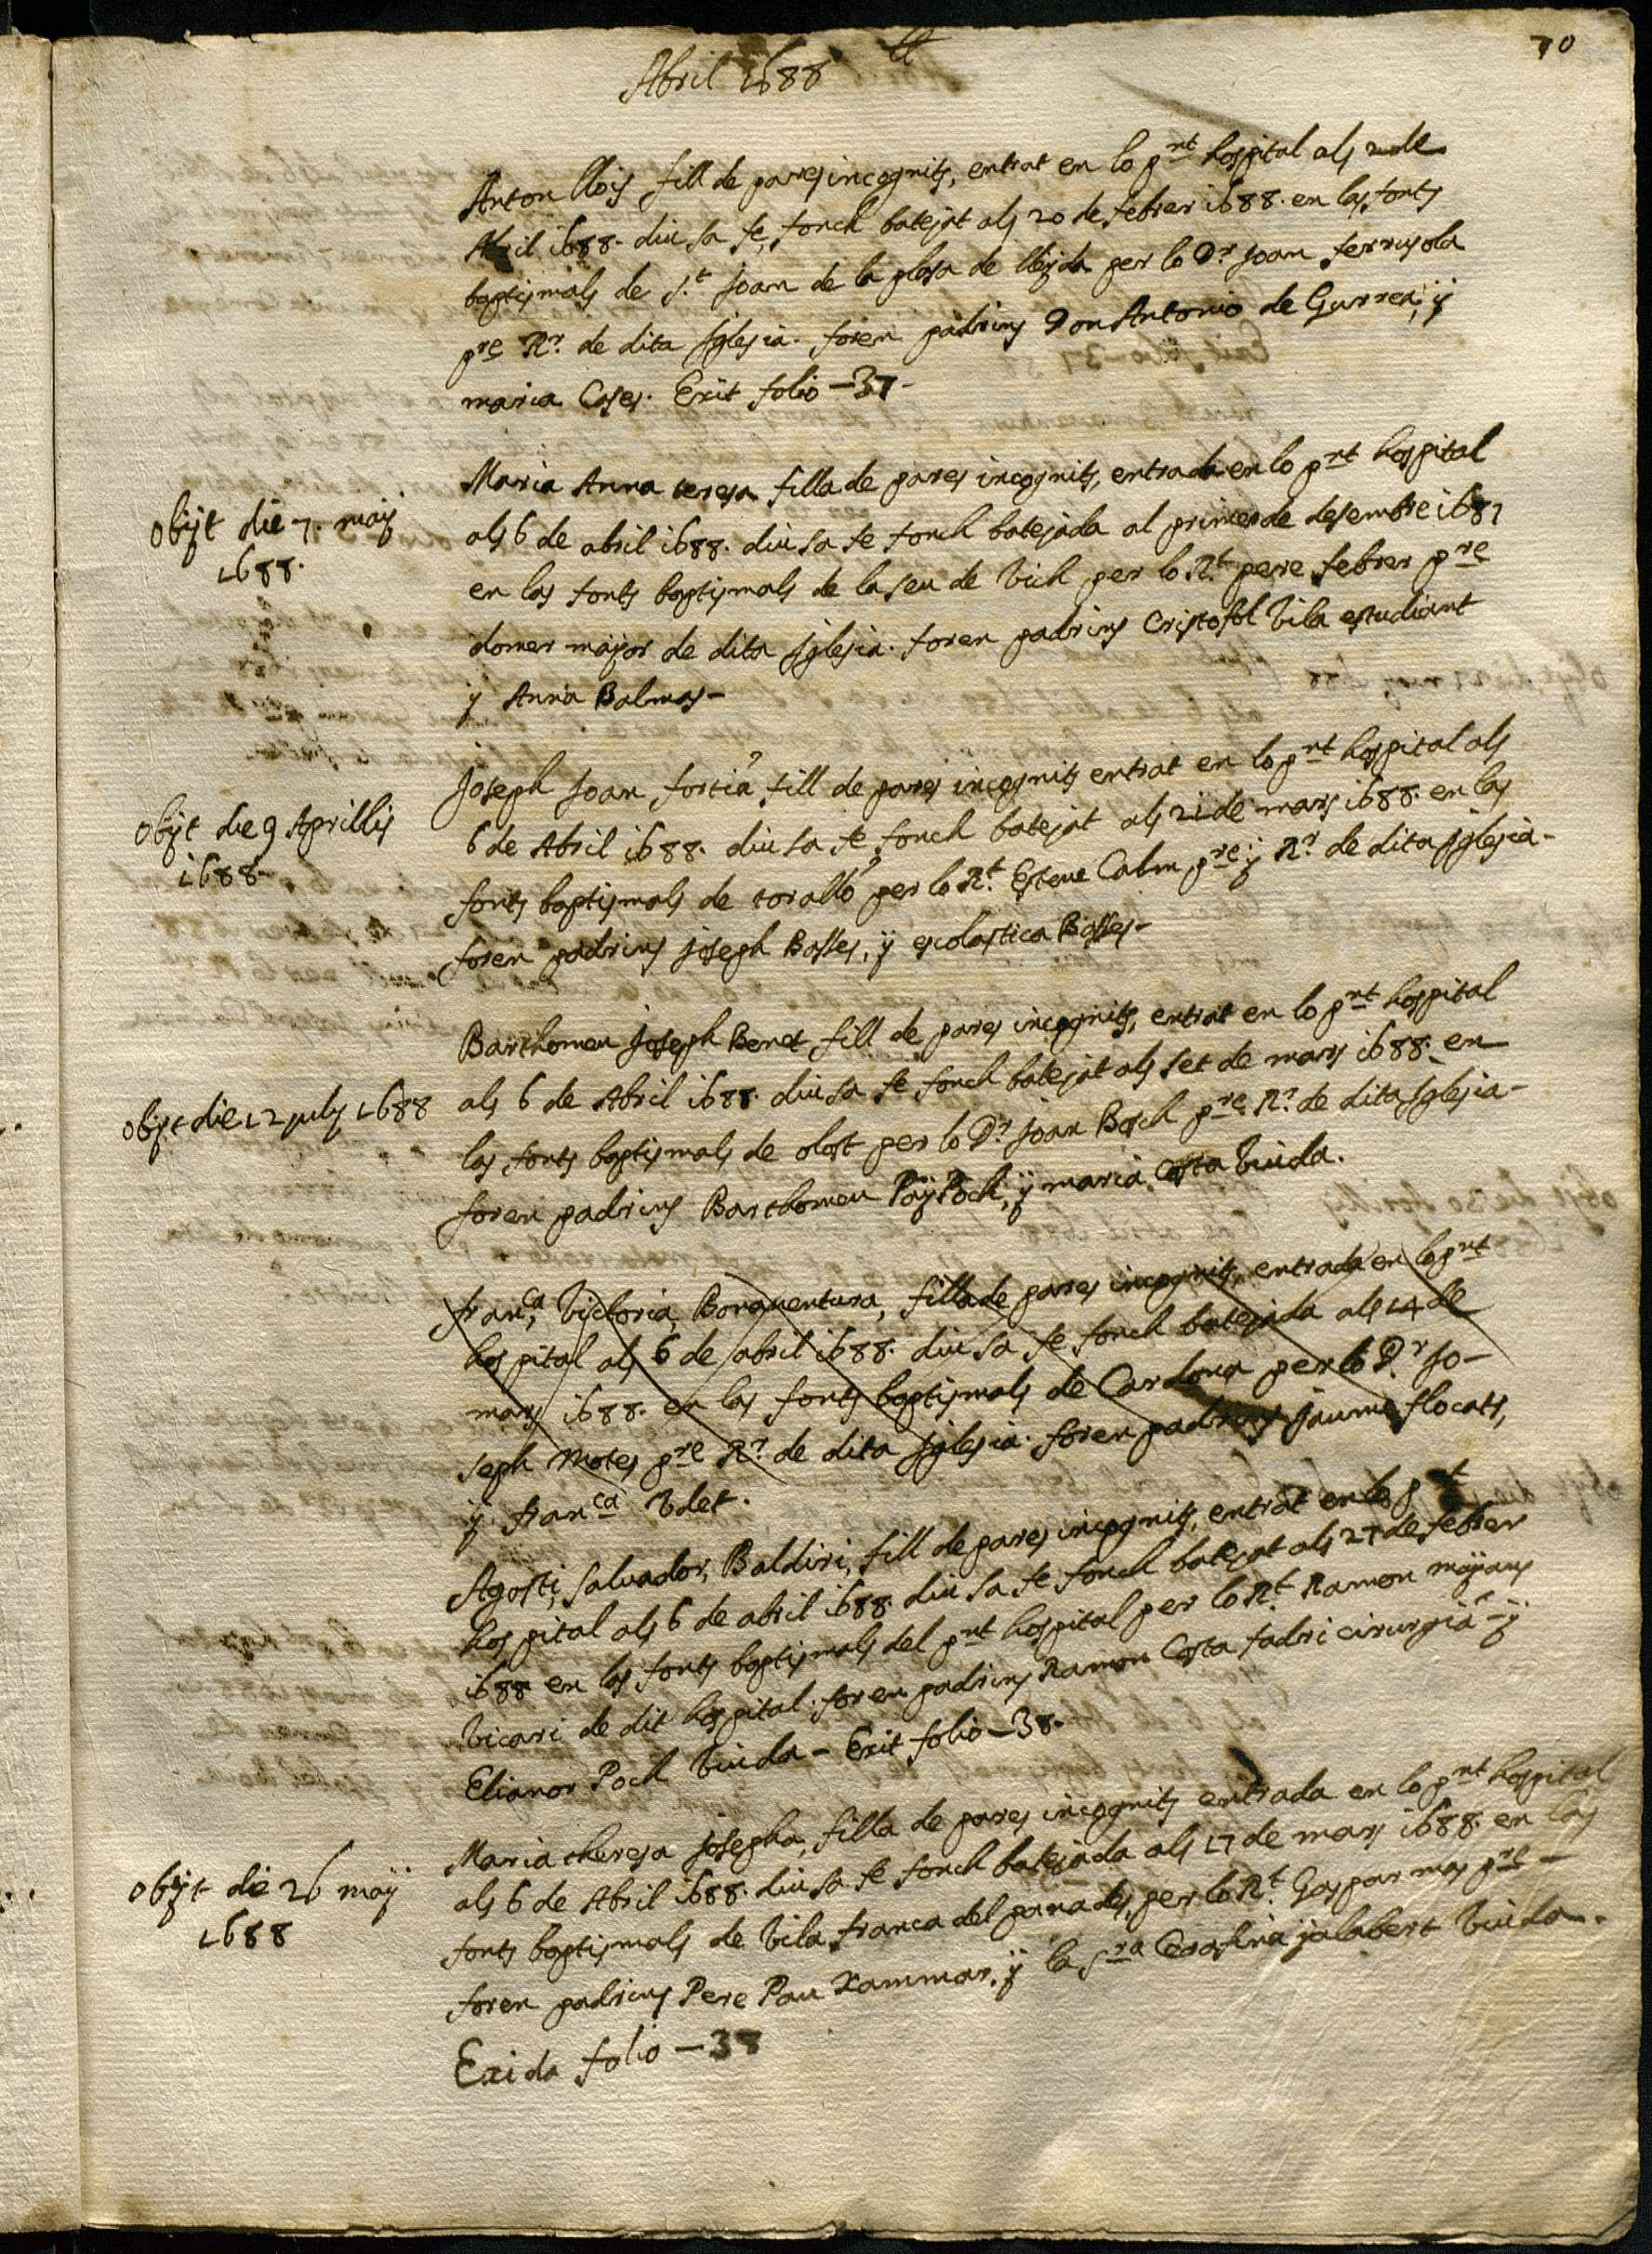 70
Abril 1688
Anton llois fill de pares incognits, entrat en lo pnt hospital als 2 de
Abril 1688. diu sa fe, fonch batejat als 20 de febrer 1688. en las fonts
baptismals de St. Joan de la plasa de lleyda per lo Dr. Joan ferrusola
pre Rr. de dita Iglesia. foren padrins Don Antonio de Gurrea, y
maria Coses. Exit folio - 37-
Maria Anna teresa filla de pares incognits, entrada en lo pnt hospital
als 6 de abril 1688. diu sa fe fonch batejada al primer de desembre 1687
en las fonts baptismals de la seu de Vich per lo Rt. pere febrer pre
domer major de dita Iglesia. foren padrins Cristofol Vila estudiant
y Anna Balmas-
Obijt die 7. maij
1688.
Joseph Joan fortiá fill de pares incognits entrat en lo pnt hospital als
6 de Abril 1688. diu sa fe, fonch batejat als 21 de mars 1688. en las
fonts baptismals de toralló per lo Rt. Esteve Calm pre y Rr. de dita Iglesia-
foren padrins Joseph Bosses, y escolastica Bosses-
Obijt die 9 Aprillis
1688.
Barthomeu Joseph Benet fill de pares incognits, entrat en lo pnt hospital
als 6 de Abril 1688. diu sa fe fonch batejat als set de mars 1688. en
las fonts baptismals de olost per lo Dr. Joan Bosch pre Rr. de dita Iglesia-
foren padrins Barthomeu PuijPoch, y maria Costa Viuda.
Obijt die 12 july 1688
franca, Victoria, Bonaventura, filla de pares incognits, entrada en lo pnt
hospital als 6 de abril 1688. diu sa fe fonch batejada als 14 de
mars 1688. en las fonts baptismals de Cardona per lo Dr. Jo-
seph Motes pre Rr. de dita Iglesia. foren padrins Jaume flocats,
y franca Vdet.
Agosti, salvador, Baldiri, fill de pares incognits, entrat en lo pnt
hospital als 6 de abril 1688. diu sa fe fonch batejat als 27 de febrer
1688 en las fonts baptismals del pnt hospital per lo Rt. Ramon mijans
Vicari de dit hospital. foren padrins Ramon Costa fadri cirurgiá - y
Elianor Poch Viuda - Exit folio - 38.
Maria theresa josepha, filla de pares incognits entrada en lo pnt hospital
als 6 de Abril 1688. diu sa fe fonch batejada als 17 de mars 1688. en las
fonts baptismals de Vila franca del panades, per lo Rt. Gaspar mas pre -
foren padrins Pere Pau Xammar, y la sra Cerafina jalabert Viuda.
Exida folio - 38
Obijt die 26 maij
1688